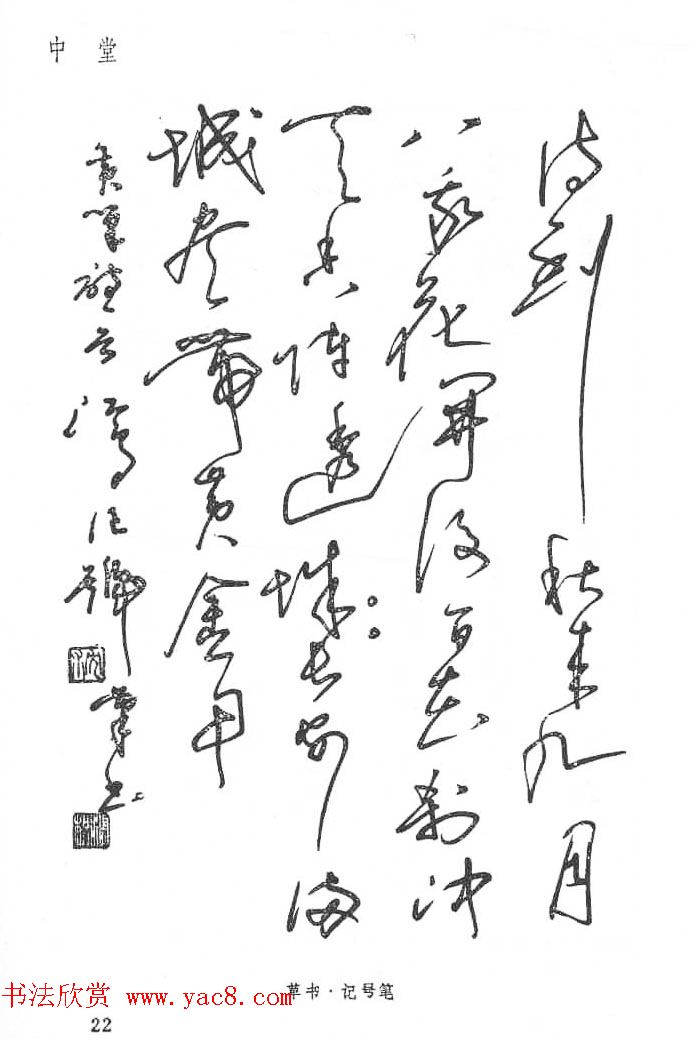 中堂
待到秋来九月
八我花开后百花刹冲
天香阵透城长安满
城尽带黄金甲
黄巢 记号笔书
草书·记号笔
书法欣赏 www.yac8.com
22